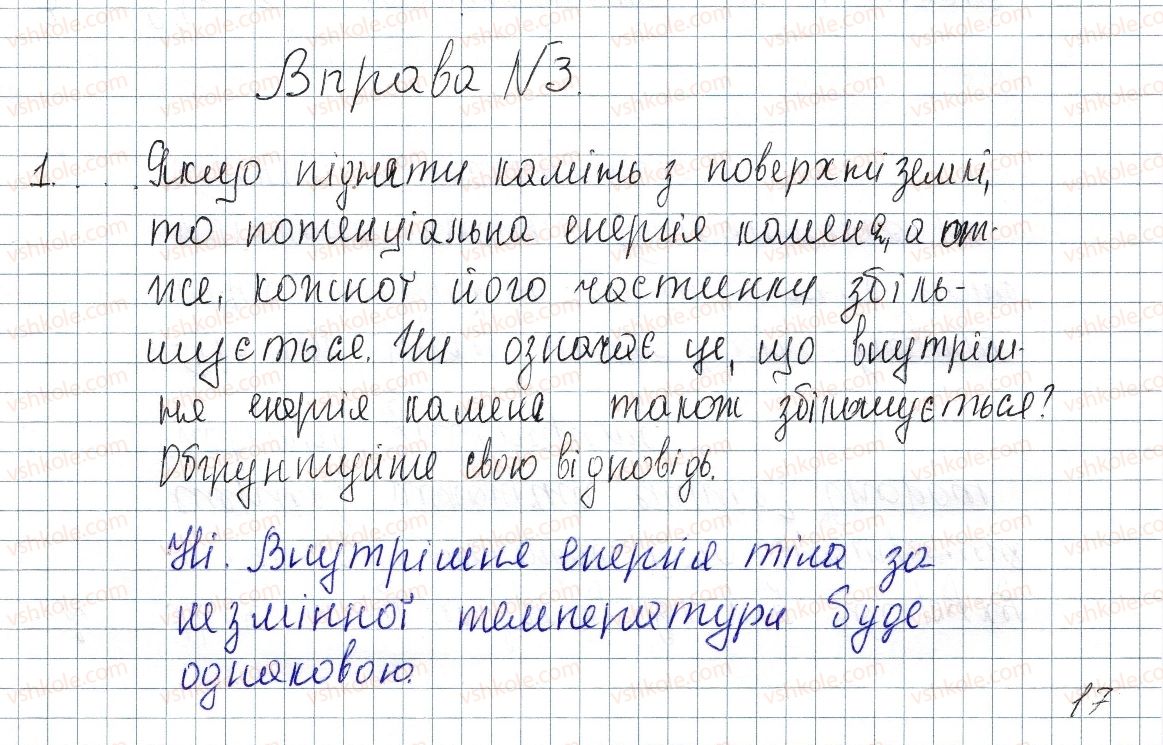 Вправа №3.
1. . . . . Якщо підняти камінь з поверхні землі,
то потенціальна енергія каменя, а от-
же, кожної його частинки збіль-
шується. Чи означає це, що внутріш-
ня енергія каменя також збільшується?
Обґрунтуйте свою відповідь.
Ні. Внутрішня енергія тіла за
незмінної температури буде
однаковою.
17